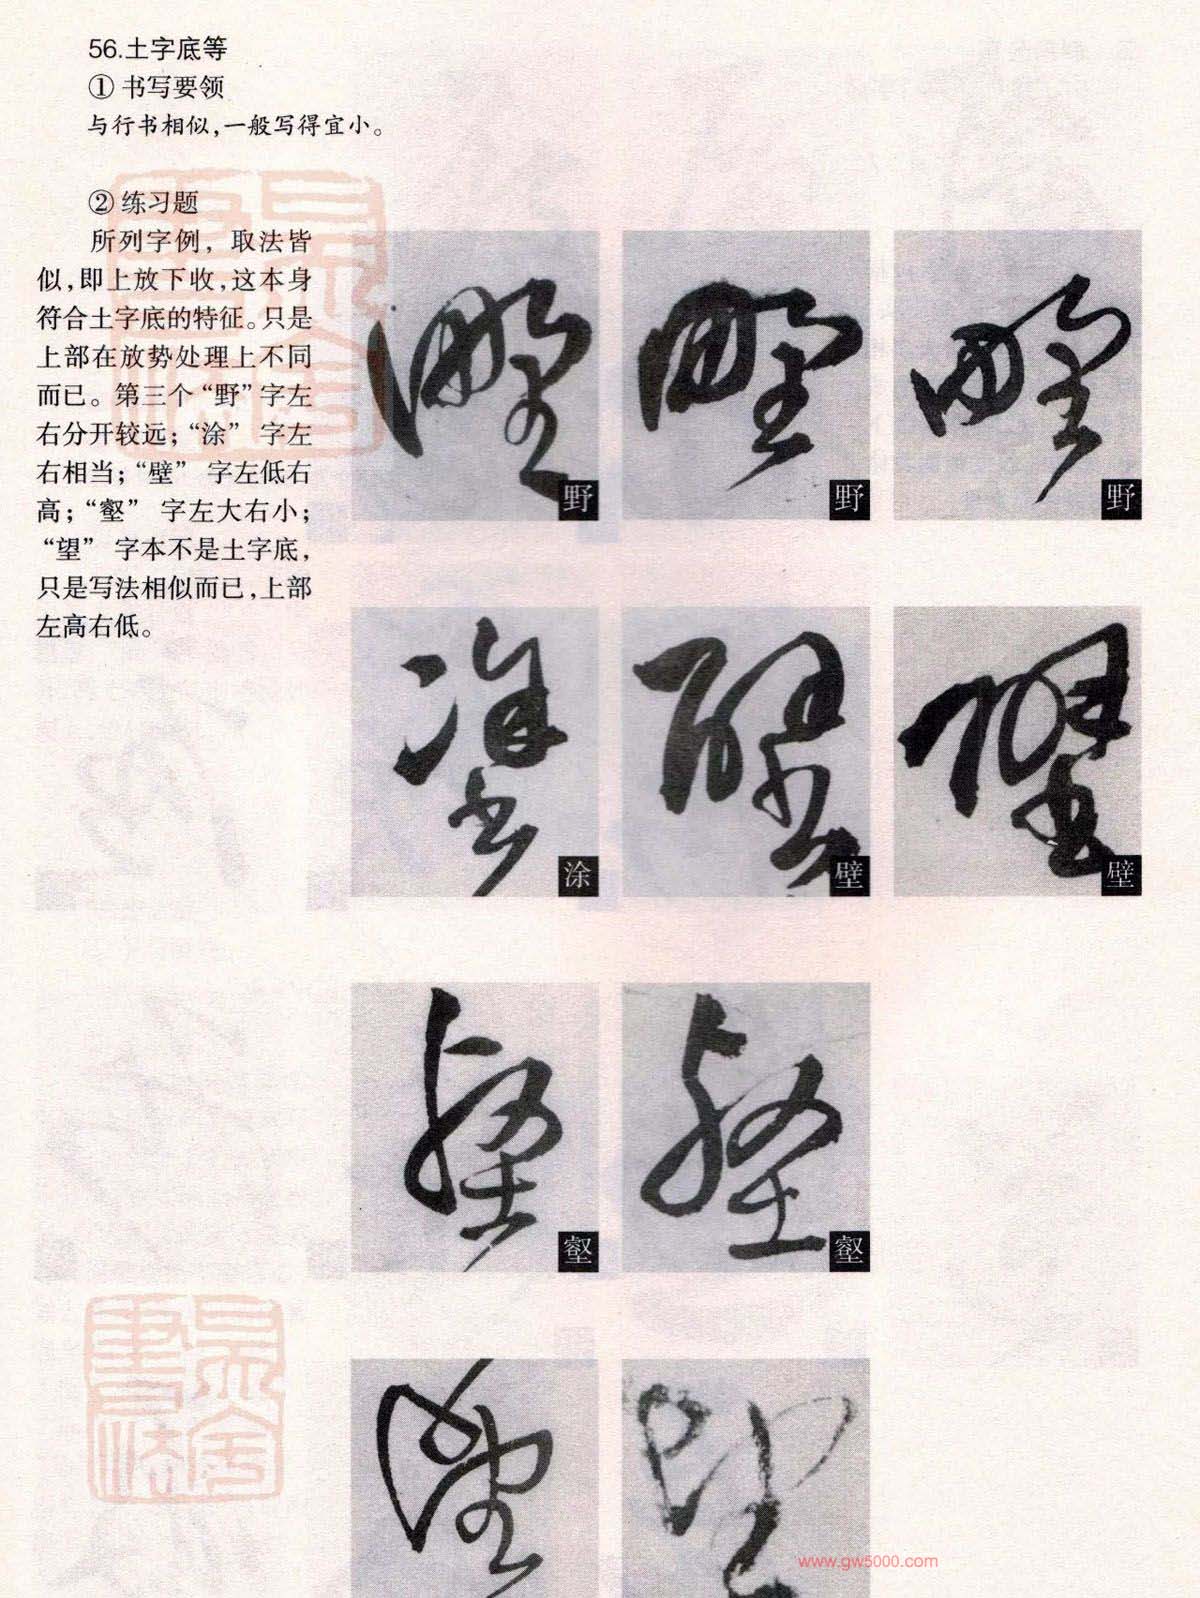 56.土字底等
① 书写要领
与行书相似,一般写得宜小。
② 练习题
所列字例，取法皆
似,即上放下收,这本身
符合土字底的特征。只是
上部在放势处理上不同
而已。第三个“野”字左
右分开较远；“涂”字左
右相当；“壁”字左低右
高；“壑”字左大右小；
“望”字本不是土字底，
只是写法相似而已,上部
左高右低。
野
野
野
涂
壁
壁
壑
壑
www.gw5000.com